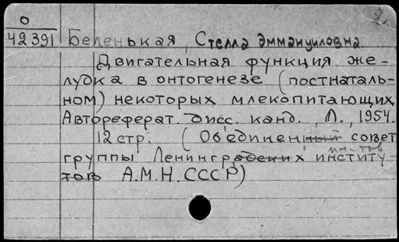 0
42391 Беленькая, Стелла Эммануиловна
Двигательная функция же-
лудка в онтогенезе (постнаталь-
ном) некоторых млекопитающих
Автореферат. дисс. канд. Л., 1954.
12 стр. (Объединенный совет
ин-тов
группы Ленинградских институ-
тов А.М.Н. СССР)